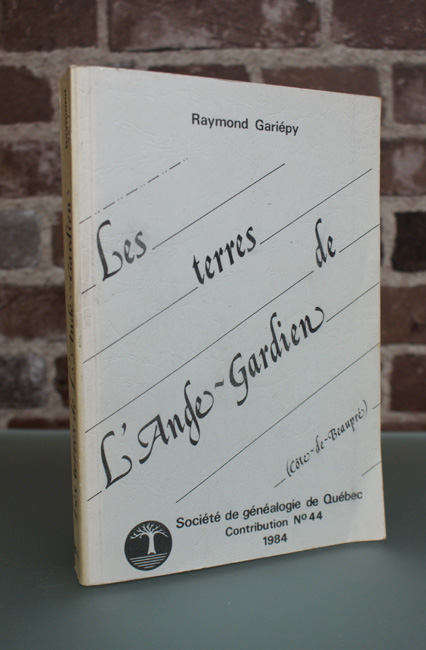 Raymond Gariépy
Les terres de
L'Ange-Gardien
(Côte-de-Beaupré)
Société de généalogie de Québec
Contribution Nº 44
1984